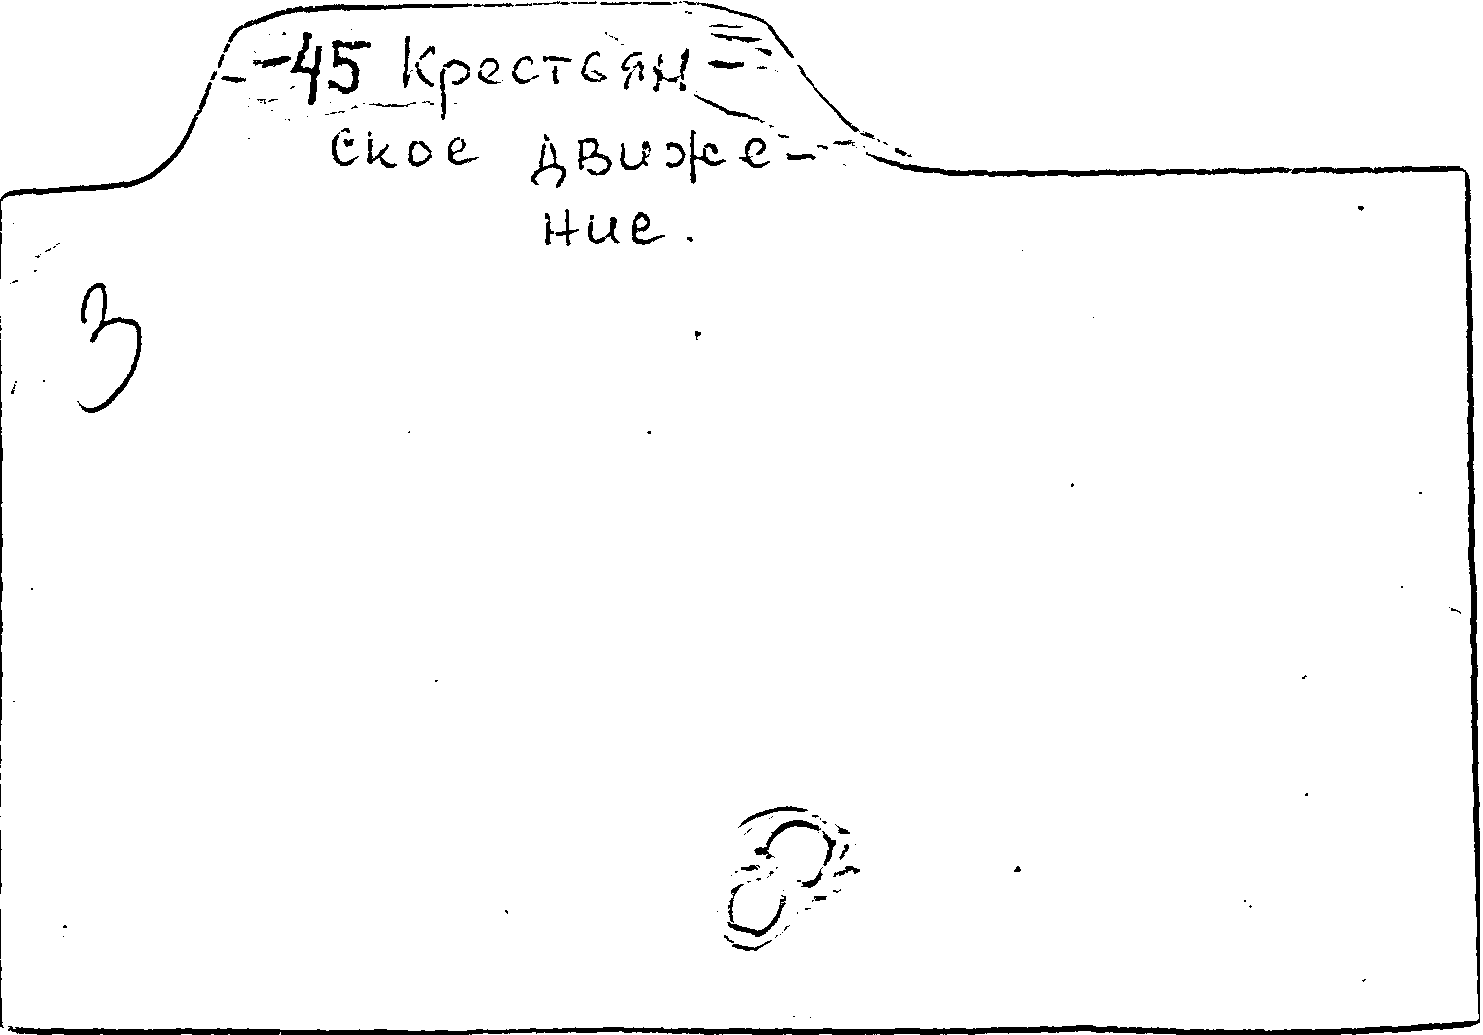 -45 Крестьян-
ское движе-
ние.
3